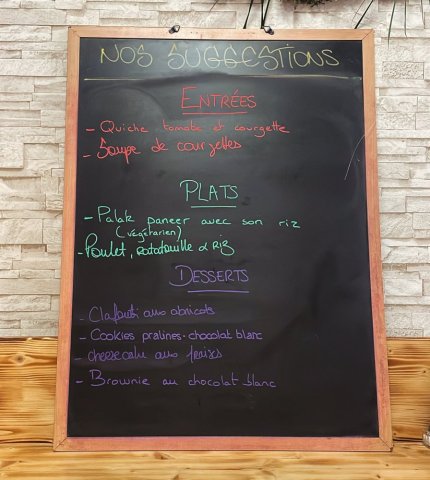 NOS SUGGESTIONS
ENTRÉES
- Quiche tomate et courgette
- Soupe de courgettes
PLATS
- Palak paneer avec son riz
(végétarien)
- Poulet, ratatouille & riz
DESSERTS
- Clafouti aux abricots
- Cookies pralines - chocolat blanc
- cheesecake aux fraises
- Brownie au chocolat blanc